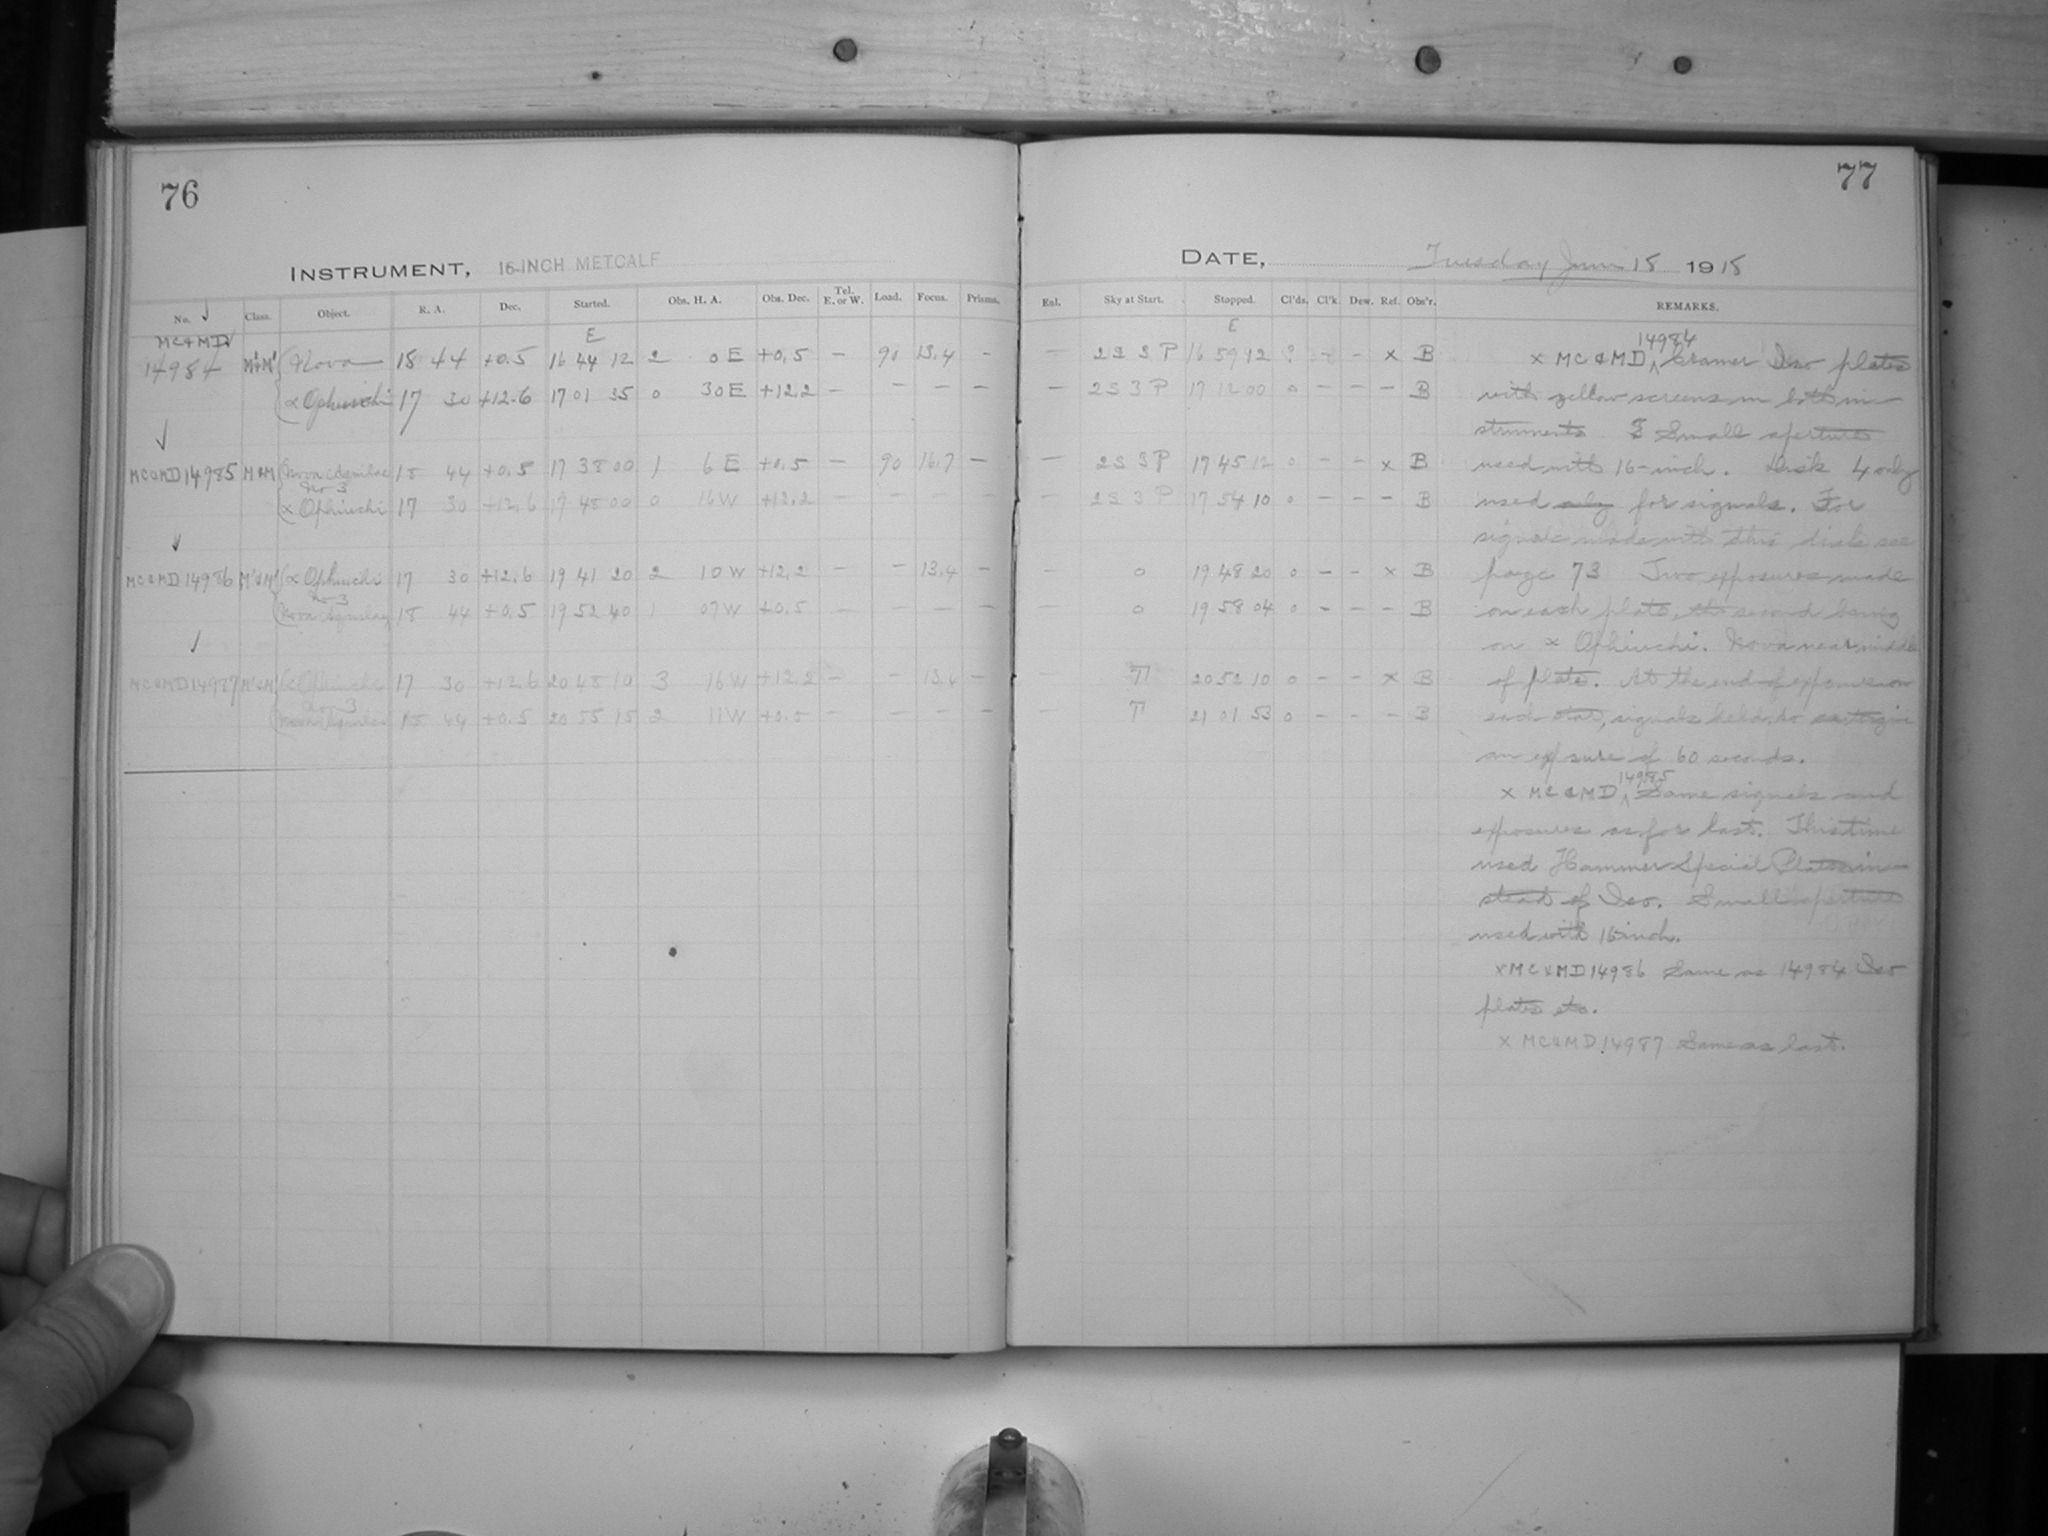 76
INSTRUMENT, 16-INCH METCALF
No. Class. Object. R. A. Dec. Started. Obs. H. A. Obs. Dec. Tel. E. or W. Load. Focus. Prisms.
E
MC & MD
14984 Nova 18 44 +0.5 16 44 12 2 0 E +0.5 — 90 13.4 —
α Ophiuchi 17 30 +12.6 17 01 35 0 30 E +12.2 — — — —
MC&MD 14985 M&M Nova Aquilae No 3 18 44 +0.5 17 38 00 1 6 E +0.5 — 90 16.7 —
α Ophiuchi 17 30 +12.6 17 48 00 0 16 W +12.2 — — — —
MC&MD 14986 α Ophiuchi 17 30 +12.6 19 41 20 2 10 W +12.2 — — 13.4 —
Nova Aquilae No 3 18 44 +0.5 19 52 40 1 07 W +0.5 — — — —
MC&MD 14987 α Ophiuchi 17 30 +12.6 20 48 10 3 16 W +12.2 — — 13.4 —
Nova Aquilae No 3 18 44 +0.5 20 55 15 2 11 W +0.5 — — — —
77
DATE, Tuesday June 18 1918
Enl. Sky at Start. Stopped. Cl'ds. Cl'k. Dew. Ref. Obs'r. REMARKS.
E
— 2 S 3 P 16 59 12 ? - - x B
— 2 S 3 P 17 12 00 0 - - - B
— 2 S 3 P 17 45 12 0 - - x B
— 2 S 3 P 17 54 10 0 - - - B
— 0 19 48 20 0 - - x B
— 0 19 58 04 0 - - - B
— T 20 52 10 0 - - x B
T 21 01 53 0 - - - B
x MC & MD 14984 Cramer Iso plates
with yellow screens in both in-
struments. Small apertures
used with 16-inch. Disk 4 only
used for signals. For
signals made with this disk see
page 73 Two exposures made
on each plate, the second being
on α Ophiuchi. Nova near middle
of plate. At the end of exposure on
each star, signals held to give
an exposure of 60 seconds.
x MC & MD 14985 Same signals and
exposures as for last. This time
used Hammer Special Plates in-
stead of Iso. Small aperture
used with 16 inch.
x MC & MD 14986 Same as 14984 Iso
plates etc.
x MC & MD 14987 Same as last.